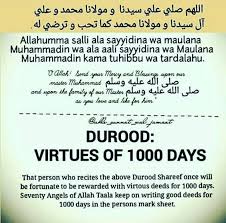 اللهم صلي علي سيدنا و مولانا محمد و علي
آل سيدنا و مولانا محمد كما تحب و ترضي له.
Allahumma salli ala sayyidina wa maulana
Muhammadin wa ala aali sayyidina wa Maulana
Muhammadin kama tuhibbu wa tardalahu.
O Allah! Send your Mercy and Blessings upon our
master Muhammad صلى الله عليه وسلم
and upon the family of our Master صلى الله عليه وسلم
as you love and like for him!
DUROOD:
VIRTUES OF 1000 DAYS
That person who recites the above Durood Shareef once will
be fortunate to be rewarded with virtous deeds for 1000 days.
Seventy Angels of Allah Taala keep on writing good deeds for
1000 days in the persons mark sheet.